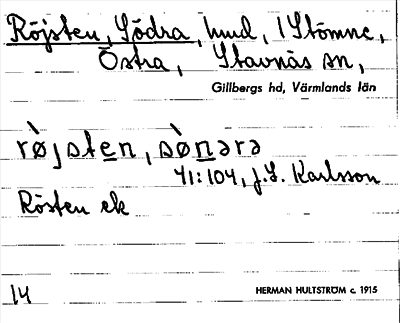 Röjsten, Södra, hmd, 1 Stömne,
Östra, Stavnäs sn,
Gillbergs hd, Värmlands län
rø̀jsten, sø̀nərə
41:104, J.S. Karlsson
Rösten ek
14 HERMAN HULTSTRÖM c. 1915